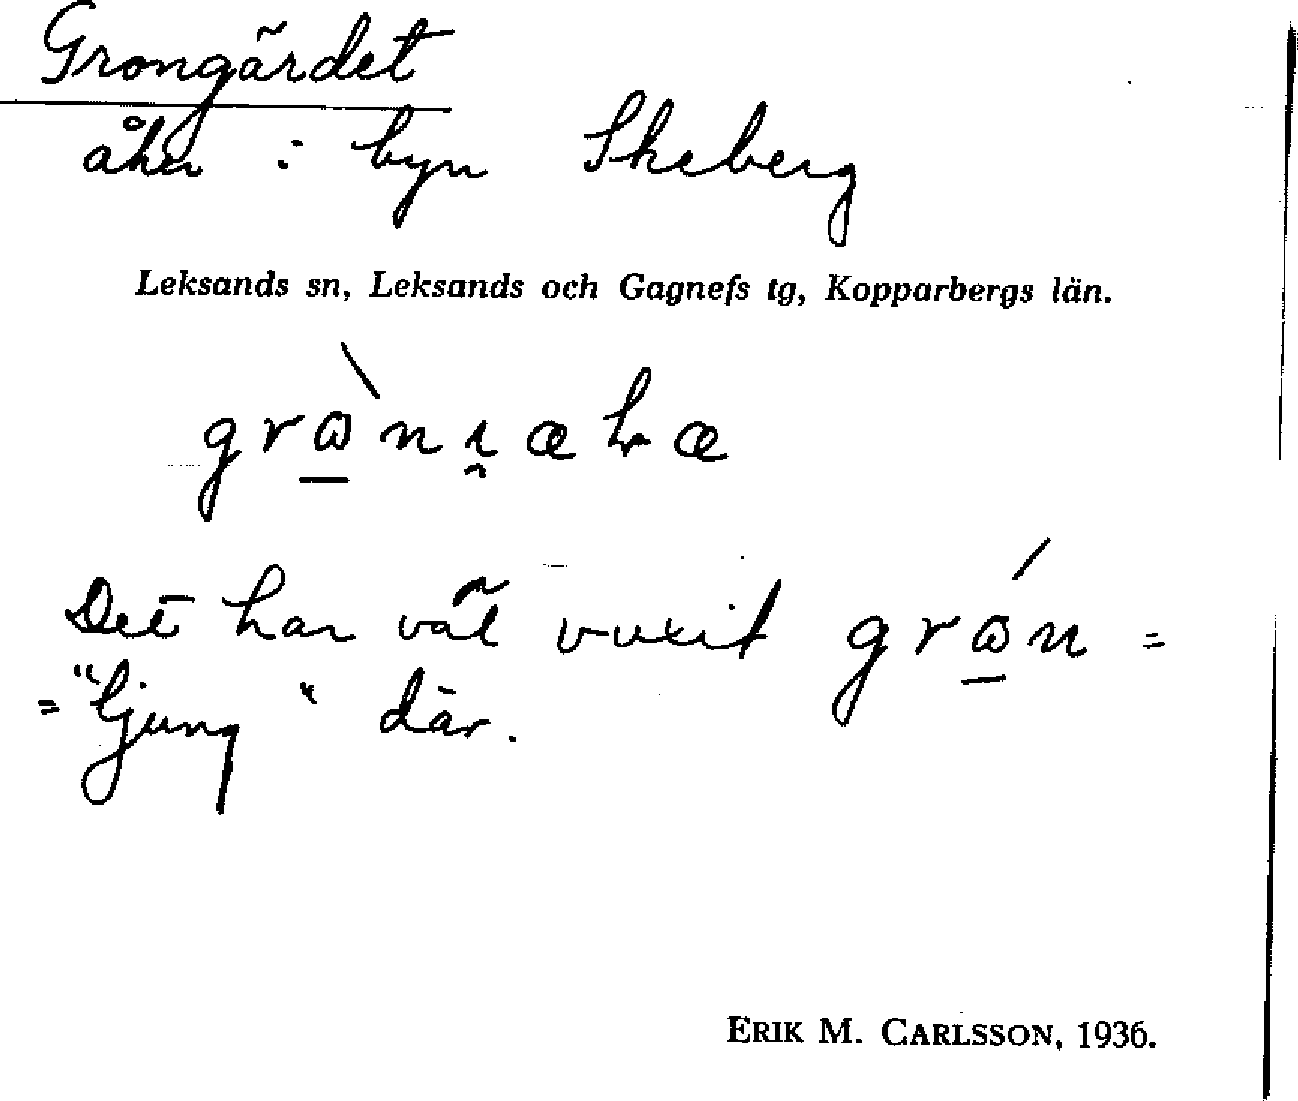 Grongärdet
åker i byn Skeberg
Leksands sn, Leksands och Gagnefs tg, Kopparbergs län.
Det har väl vuxit grɷ̲́n =
= "ljung" där.
ERIK M. CARLSSON, 1936.